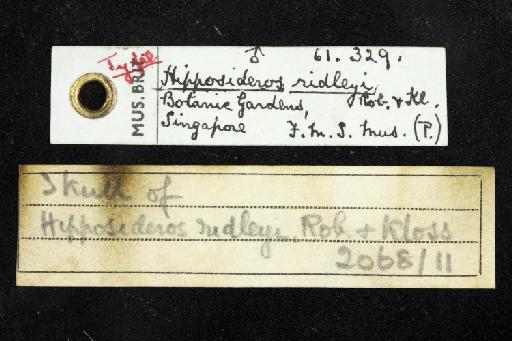 ♂ 61.329.
Type
MUS. BRIT.
Hipposideros ridleyi,
Botanic Gardens, Rob. & Kl.
Singapore F.M.S. Mus. (P.)
Skull of
Hipposideros ridleyi, Rob & Kloss
2068/11